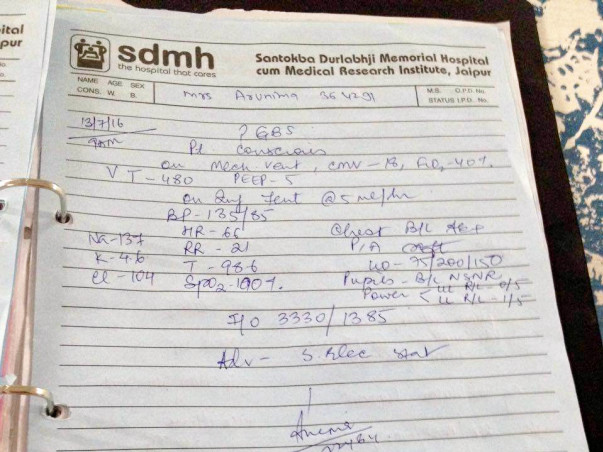 sdmh
the hospital that cares
Santokba Durlabhji Memorial Hospital
cum Medical Research Institute, Jaipur
NAME AGE SEX
CONS. W. B.
Mrs Arunima
M.S. O.P.D. No.
STATUS I.P.D. No.
13/7/16
? GBS
Pt. conscious
on Mech vent, CMV-18, FiO2-40%
VT-480 PEEP-5
on Inf Fent @5ml/hr
BP-135/85
HR-66 Chest B/L AE+
Na-137 RR-21 P/A soft
K-4.6 T-98.6 UO-75/200/150
Cl-104 SpO2-100% Pupils-B/L NSNR
Power < UL R/L-0/5
LL R/L-1/5
I/O 3330/1385
Adv- S.Elec stat
ital
pur